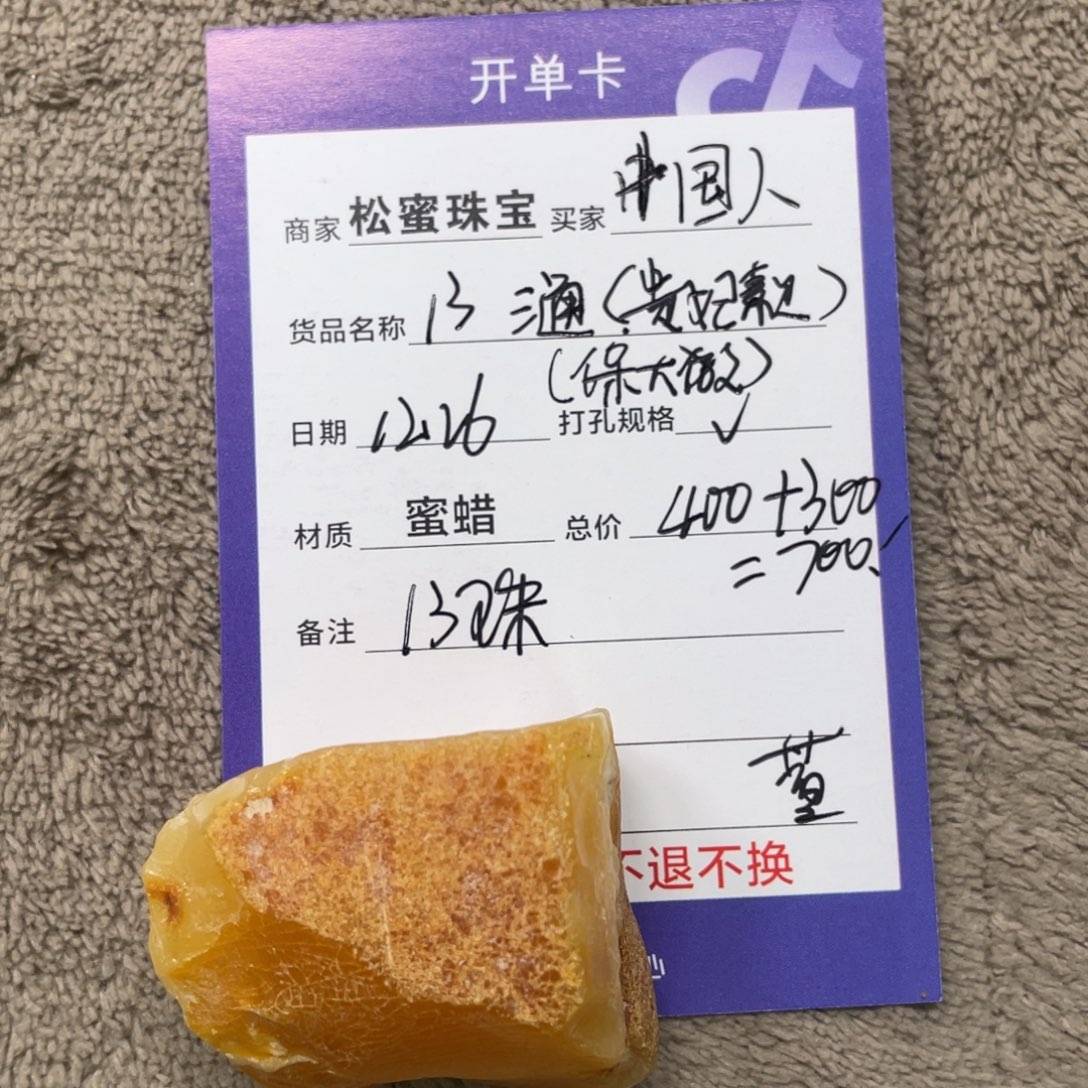 开单卡
商家 松蜜珠宝 买家 中国人
货品名称 13 三通(贵妃款)
(保大做)
日期 12.26 打孔规格 ✓
材质 蜜蜡 总价 400+300
=700.
备注 13珠
不退不换